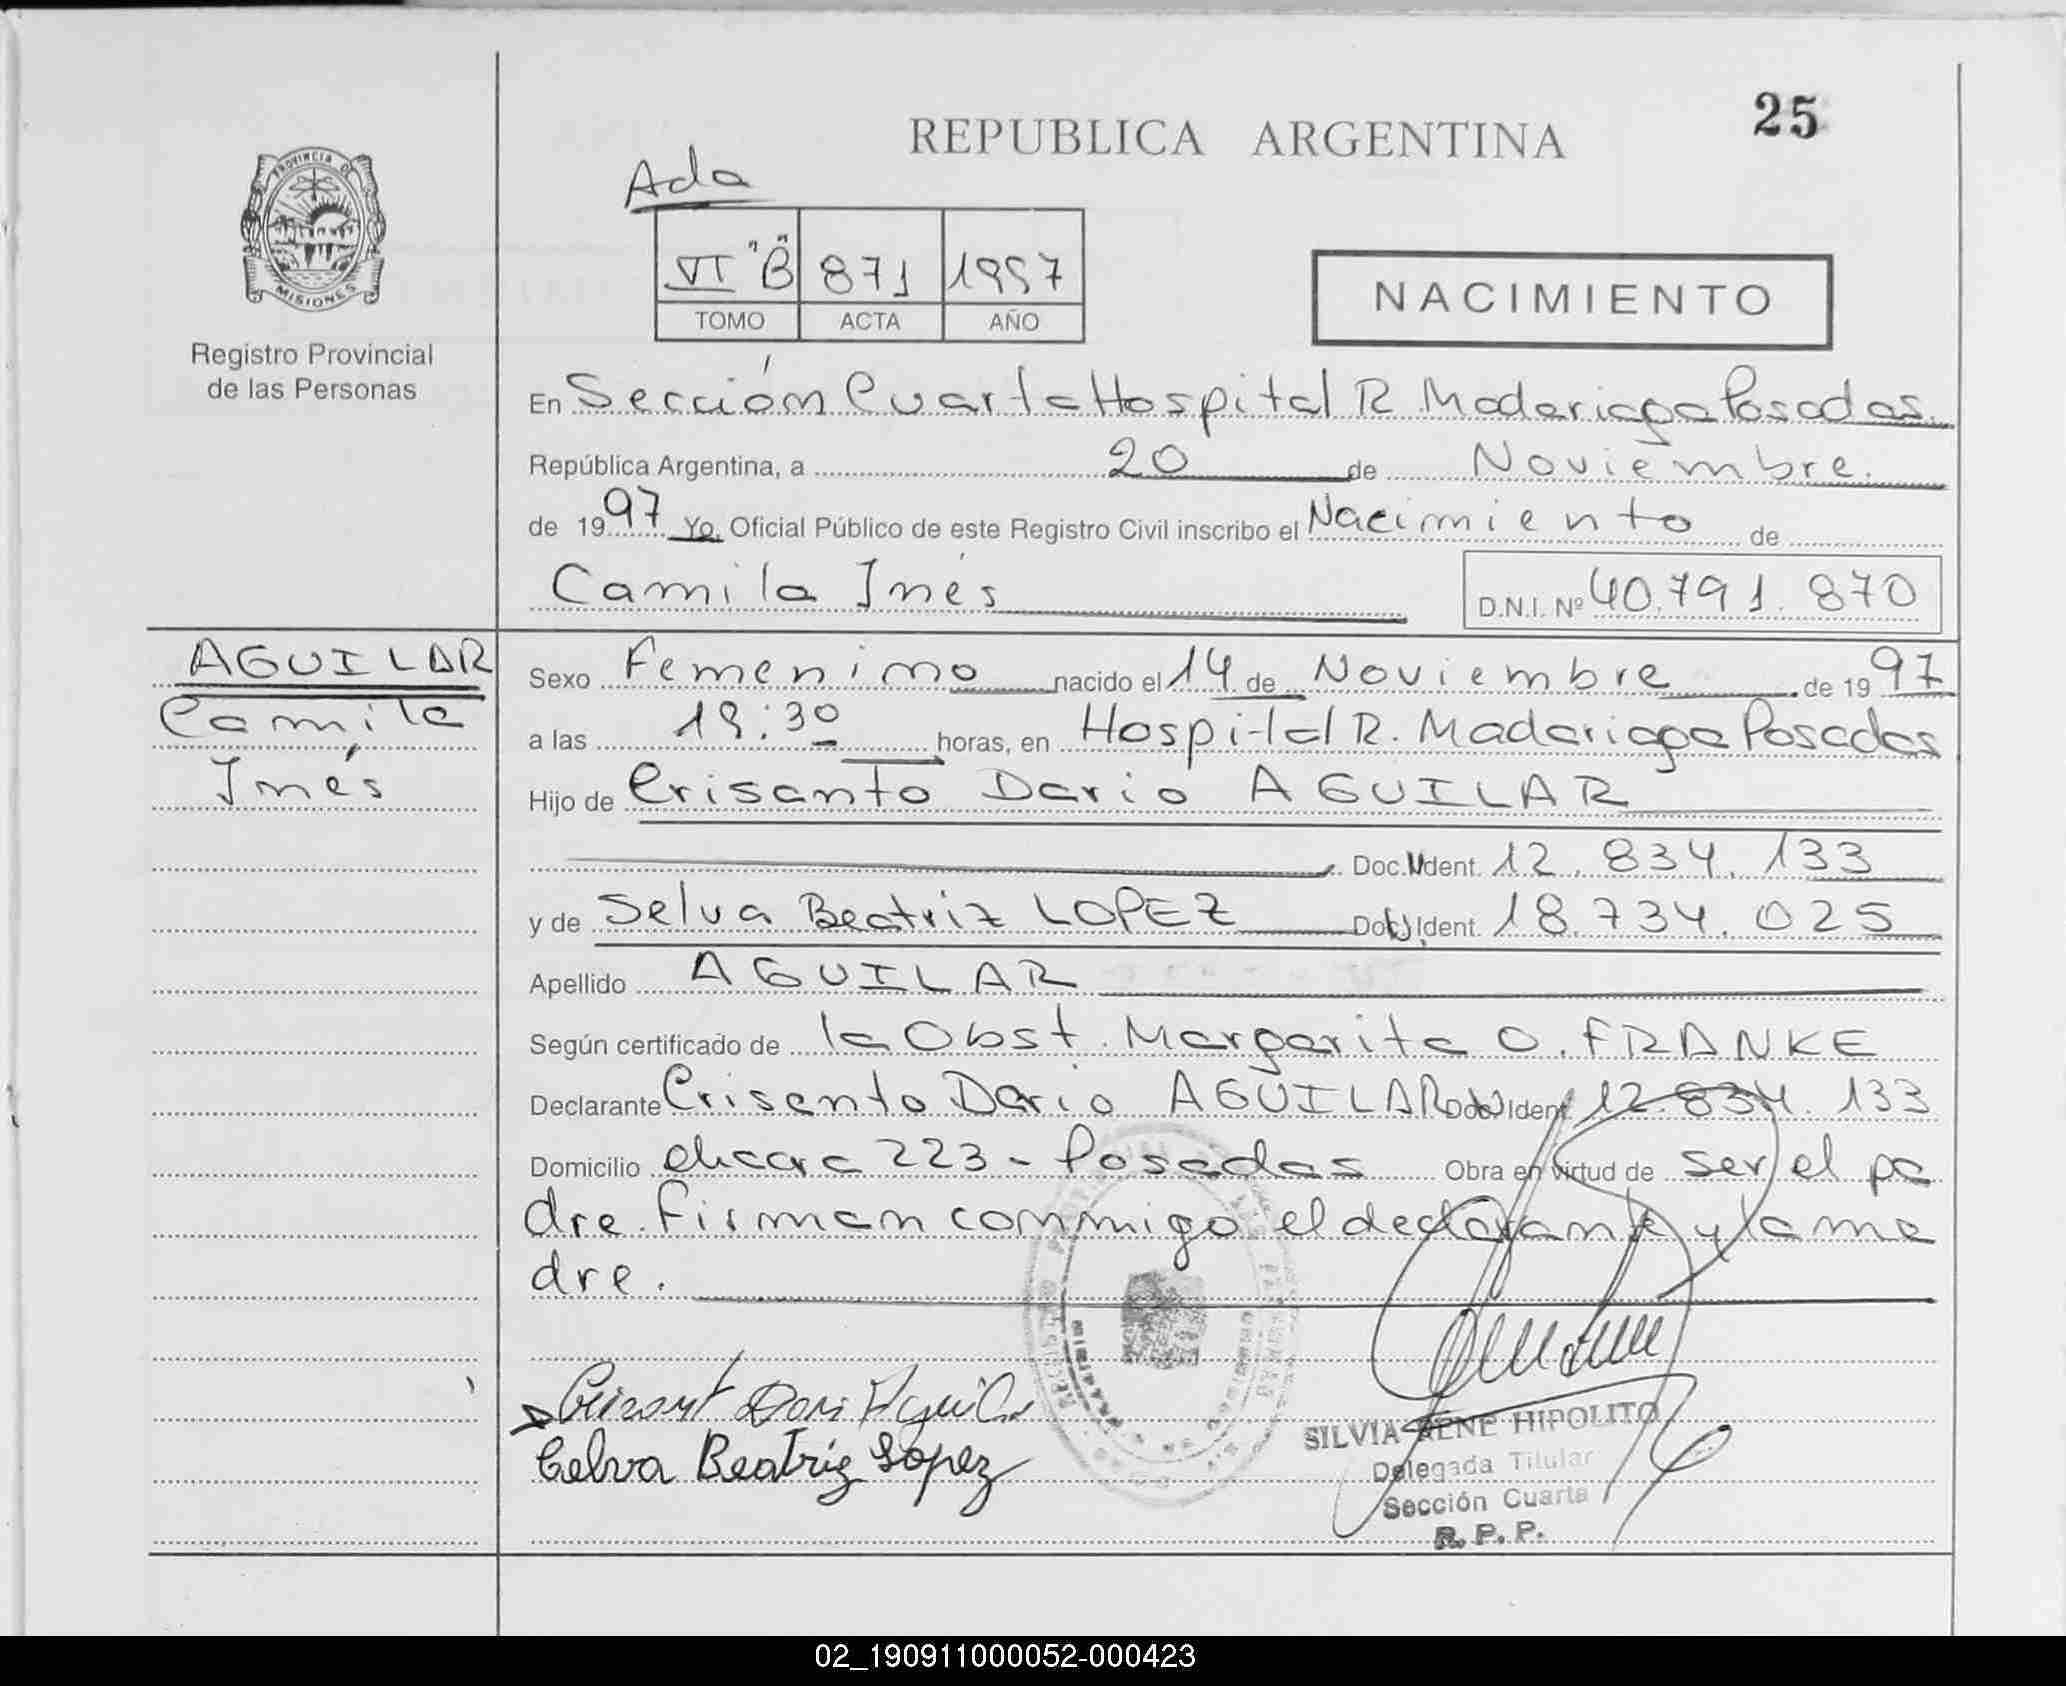 25
REPUBLICA ARGENTINA
PROVINCIA DE
MISIONES
Registro Provincial
de las Personas
Ada
VI "B" 871 1997
TOMO ACTA AÑO
NACIMIENTO
En Sección Cuarta Hospital R. Madariaga Posadas.
República Argentina, a 20 de Noviembre.
de 1997 Yo, Oficial Público de este Registro Civil inscribo el Nacimiento de
Camila Inés D.N.I. Nº 40.791.870
AGUILAR
Camila
Inés
Sexo Femenino nacido el 14 de Noviembre de 1997
a las 19:30 horas, en Hospital R. Madariaga Posadas
Hijo de Crisanto Dario AGUILAR
Doc. Ident. 12.834.133
y de Selva Beatriz LOPEZ Doc. Ident. 18.734.025
Apellido AGUILAR
Según certificado de la Obst. Margarita O. FRANKE
Declarante Crisanto Dario AGUILAR Doc. Ident. 12.834.133
Domicilio chacra 223 - Posadas Obra en virtud de ser el pa
dre. Firman conmigo el declarante y la ma
dre.
Selva Beatriz Lopez
SILVIA RENE HIPOLITO
Delegada Titular
Sección Cuarta
R. P. P.
02_190911000052-000423